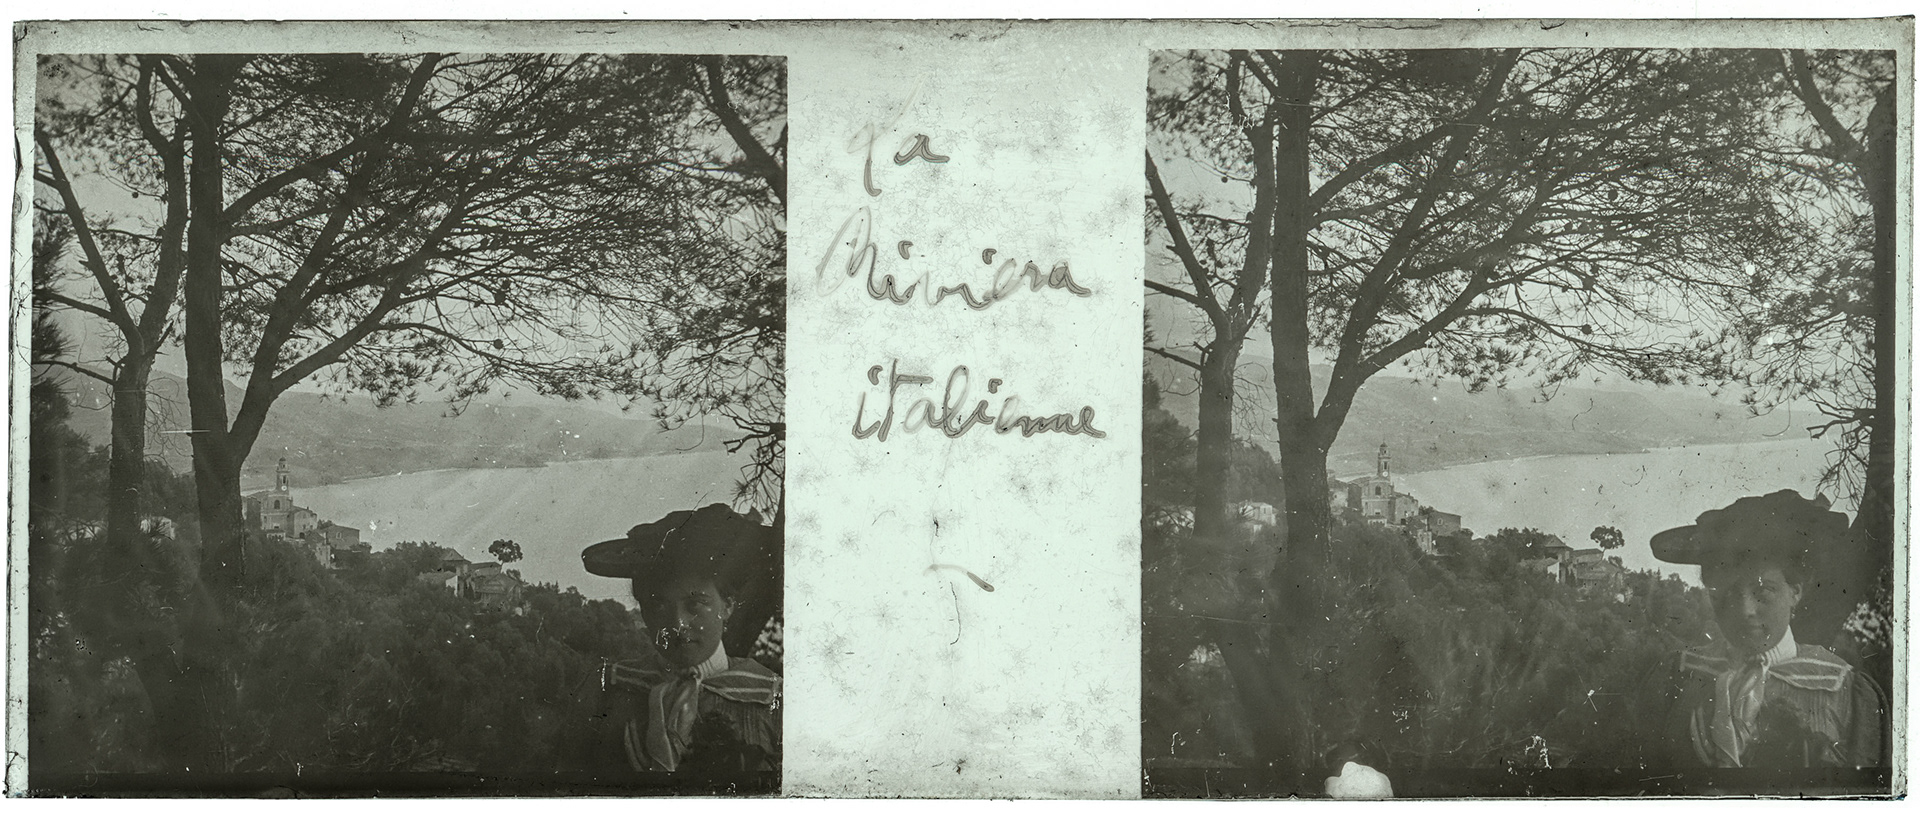 La
Riviera
italienne